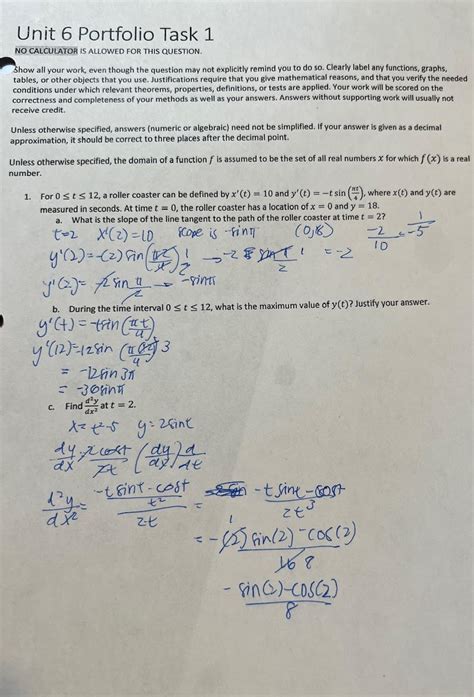 Unit 6 Portfolio Task 1
NO CALCULATOR IS ALLOWED FOR THIS QUESTION.
Show all your work, even though the question may not explicitly remind you to do so. Clearly label any functions, graphs,
tables, or other objects that you use. Justifications require that you give mathematical reasons, and that you verify the needed
conditions under which relevant theorems, properties, definitions, or tests are applied. Your work will be scored on the
correctness and completeness of your methods as well as your answers. Answers without supporting work will usually not
receive credit.
Unless otherwise specified, answers (numeric or algebraic) need not be simplified. If your answer is given as a decimal
approximation, it should be correct to three places after the decimal point.
Unless otherwise specified, the domain of a function f is assumed to be the set of all real numbers x for which f(x) is a real
number.
1. For 0 ≤ t ≤ 12, a roller coaster can be defined by x'(t) = 10 and y'(t) = −t sin (πt/4), where x(t) and y(t) are
measured in seconds. At time t = 0, the roller coaster has a location of x = 0 and y = 18.
a. What is the slope of the line tangent to the path of the roller coaster at time t = 2?
t=2 x'(2)=10 slope is -sinπ (0,18) -2/10 = 1/-5
y'(2)=-(2)sin(π2/4) → -2 = -2
y'(2)= -2sin π/2 → -sinπ
b. During the time interval 0 ≤ t ≤ 12, what is the maximum value of y(t)? Justify your answer.
y'(t)=-tsin(πt/4)
y'(12)=-12sin (π(12)/4) 3
= -12sin 3π
= -36sinπ
c. Find d²y/dx² at t = 2.
x=t²-5 y=2sint
dy/dx = 2cost/2t (dy/dx) d/dt
d²y/dx² = (-tsint-cost/t²)/2t = -tsint-cost/2t³
= -(2)sin(2)-cos(2)/16 8
-sin(2)-cos(2)/8